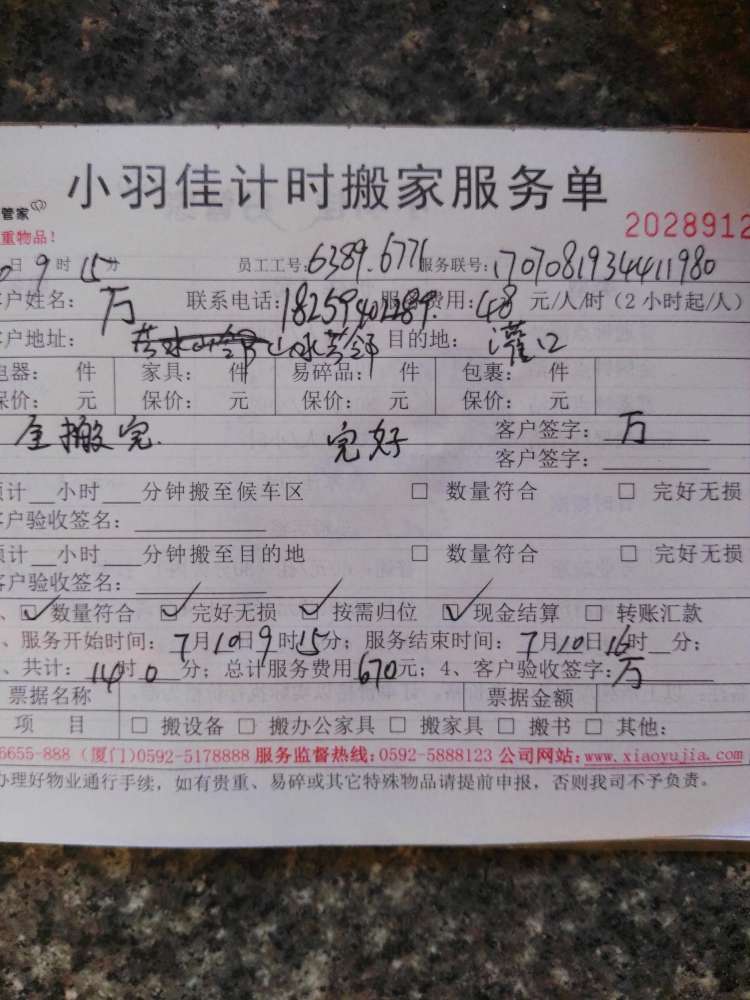 小羽佳计时搬家服务单
管家
重物品！
2028912
日9时15分 员工工号：6389.6771 服务联号：1707081934411980
客户姓名：万 联系电话：18259402289. 服务费用：48 元/人/时（2小时起/人）
客户地址： 山水芳邻 目的地：灌口
电器： 件 家具： 件 易碎品： 件 包裹： 件
保价： 元 保价： 元 保价： 元 保价： 元
全搬完. 完好 客户签字：万
客户签字：
预计__小时___分钟搬至候车区 □ 数量符合 □ 完好无损
客户验收签名：
预计__小时___分钟搬至目的地 □ 数量符合 □ 完好无损
客户验收签名：
、☑数量符合 ☑完好无损 ☑按需归位 ☑现金结算 □ 转账汇款
、服务开始时间：7月10日9时15分；服务结束时间：7月10日16时__分；
、共计：14时0分；总计服务费用670元；4、客户验收签字：万
票据名称 票据金额
项 目 □ 搬设备 □ 搬办公家具 □ 搬家具 □ 搬书 □ 其他：
6655-888（厦门）0592-5178888 服务监督热线：0592-5888123 公司网站：www.xiaoyujia.com
办理好物业通行手续，如有贵重、易碎或其它特殊物品请提前申报，否则我司不予负责。